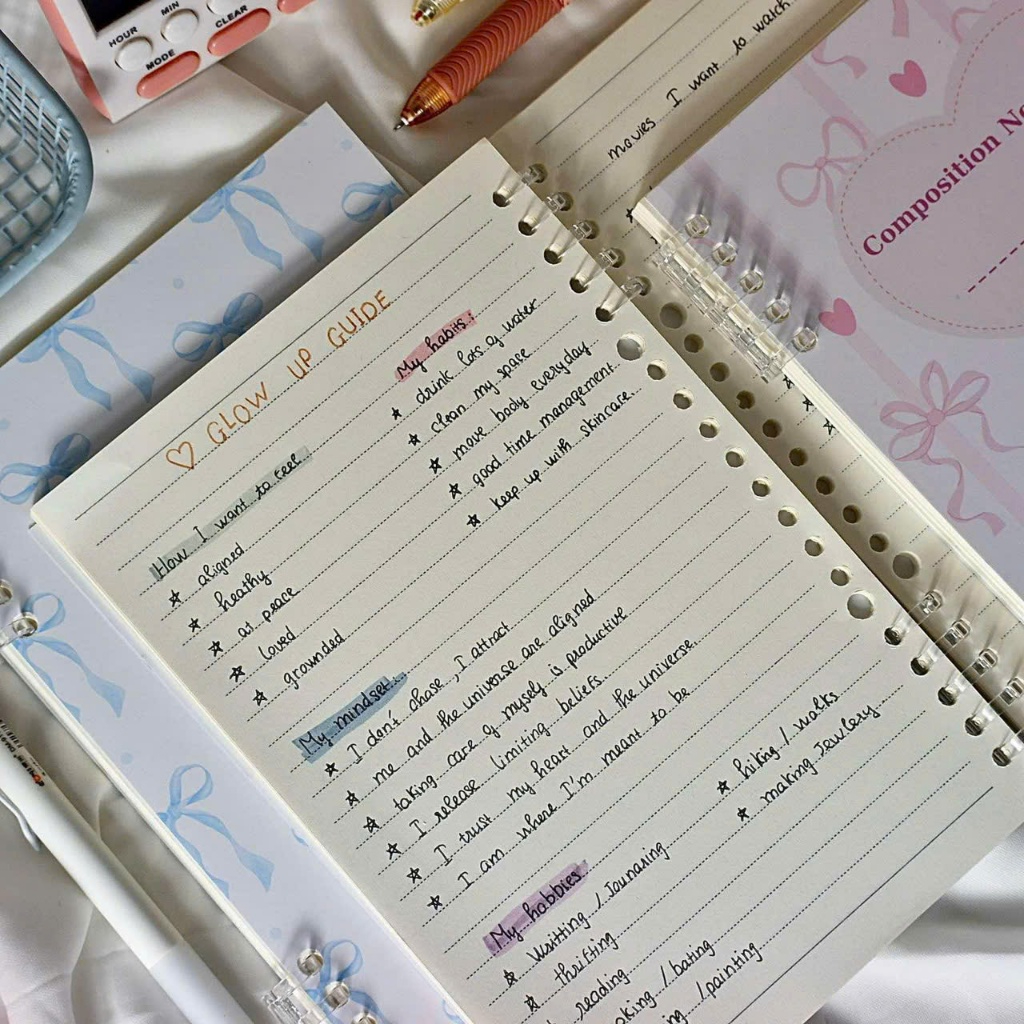 HOUR
MIN
CLEAR
MODE
movies I want to watch
Composition No
♡ GLOW UP GUIDE
How I want to feel
☆ aligned
☆ heathy
☆ at peace
☆ loved
☆ grounded
My habits:
☆ drink lots of water
☆ clean my space
☆ move body everyday
☆ good time management
☆ keep up with skincare.
My mindset:
☆ I don't chase, I attract
☆ me and the universe are aligned
☆ taking care of myself is productive
☆ I release limiting beliefs.
☆ I trust my heart and the universe.
☆ I am where I'm meant to be
My hobbies.
☆ Writting / Jounaring
☆ thrifting
reading
oking / bating
ing / painting
☆ hiking / walks
☆ making Jewlery